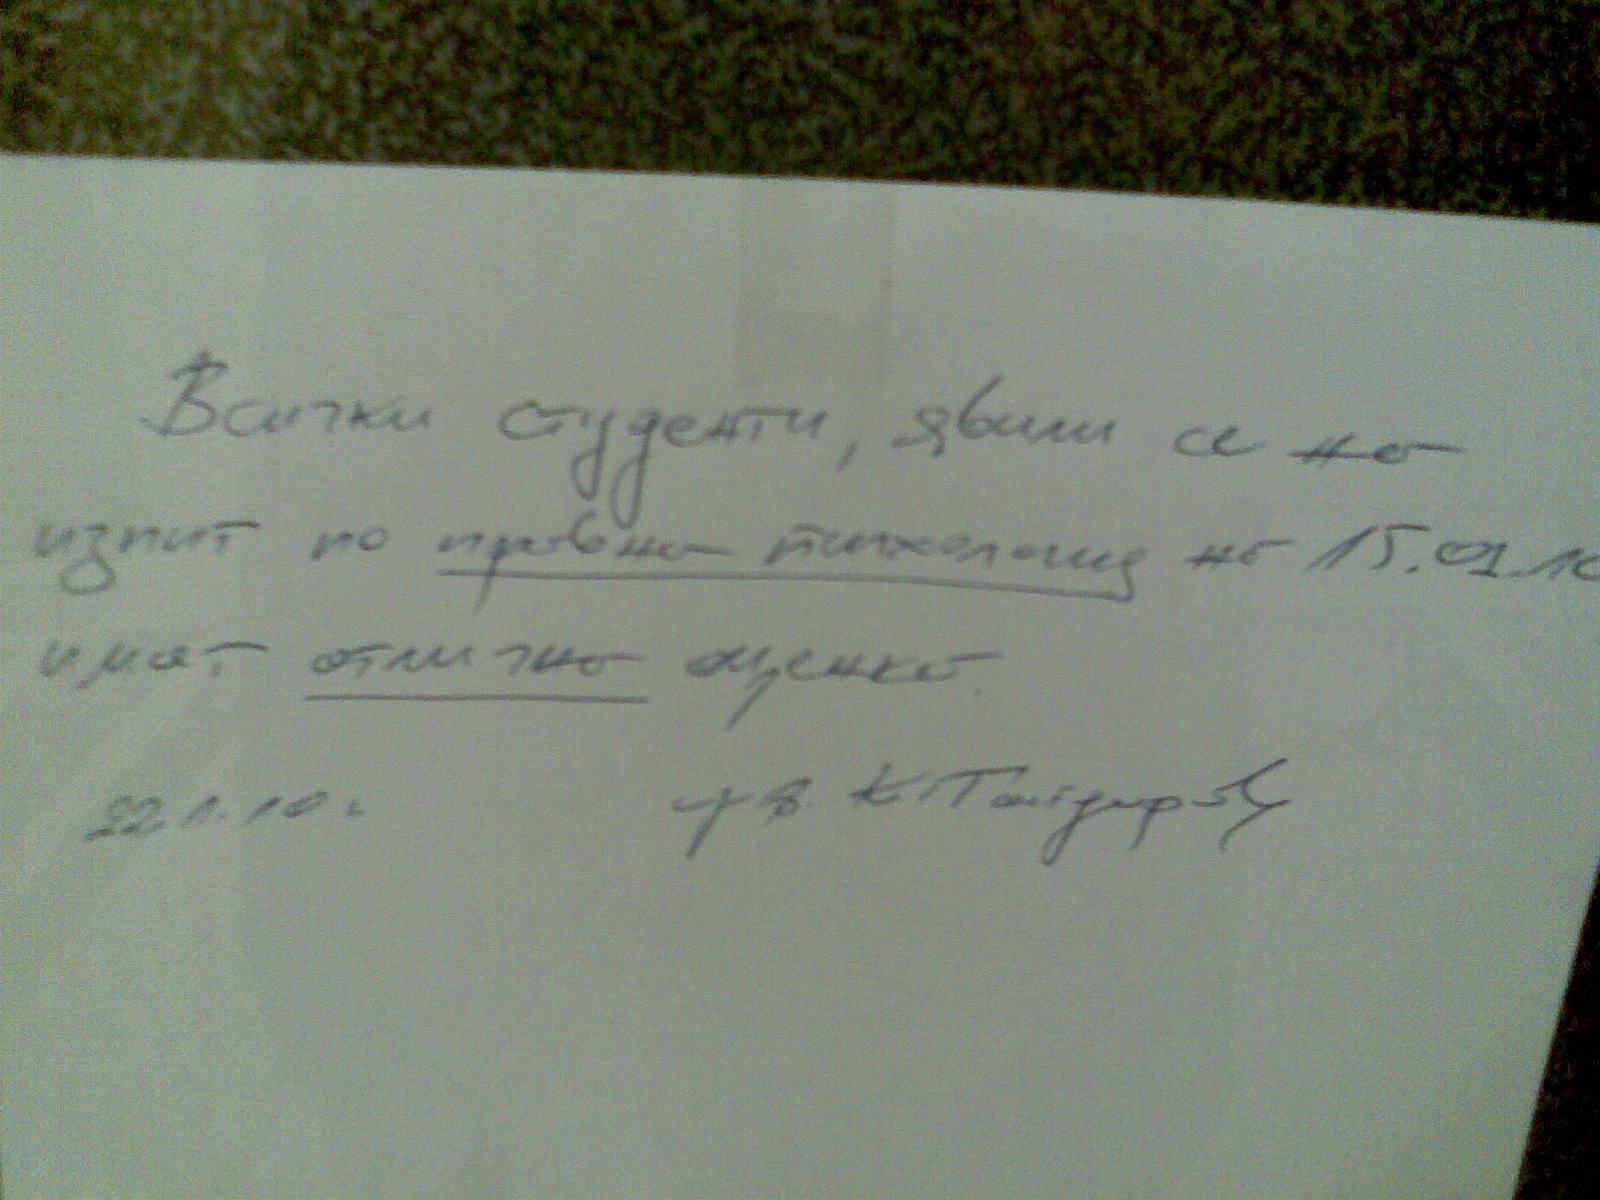 Всички студенти, явили се на
изпит по правна психология на 15.01.10
имат отлична оценка.
22.1.10 г. К. Танджаров